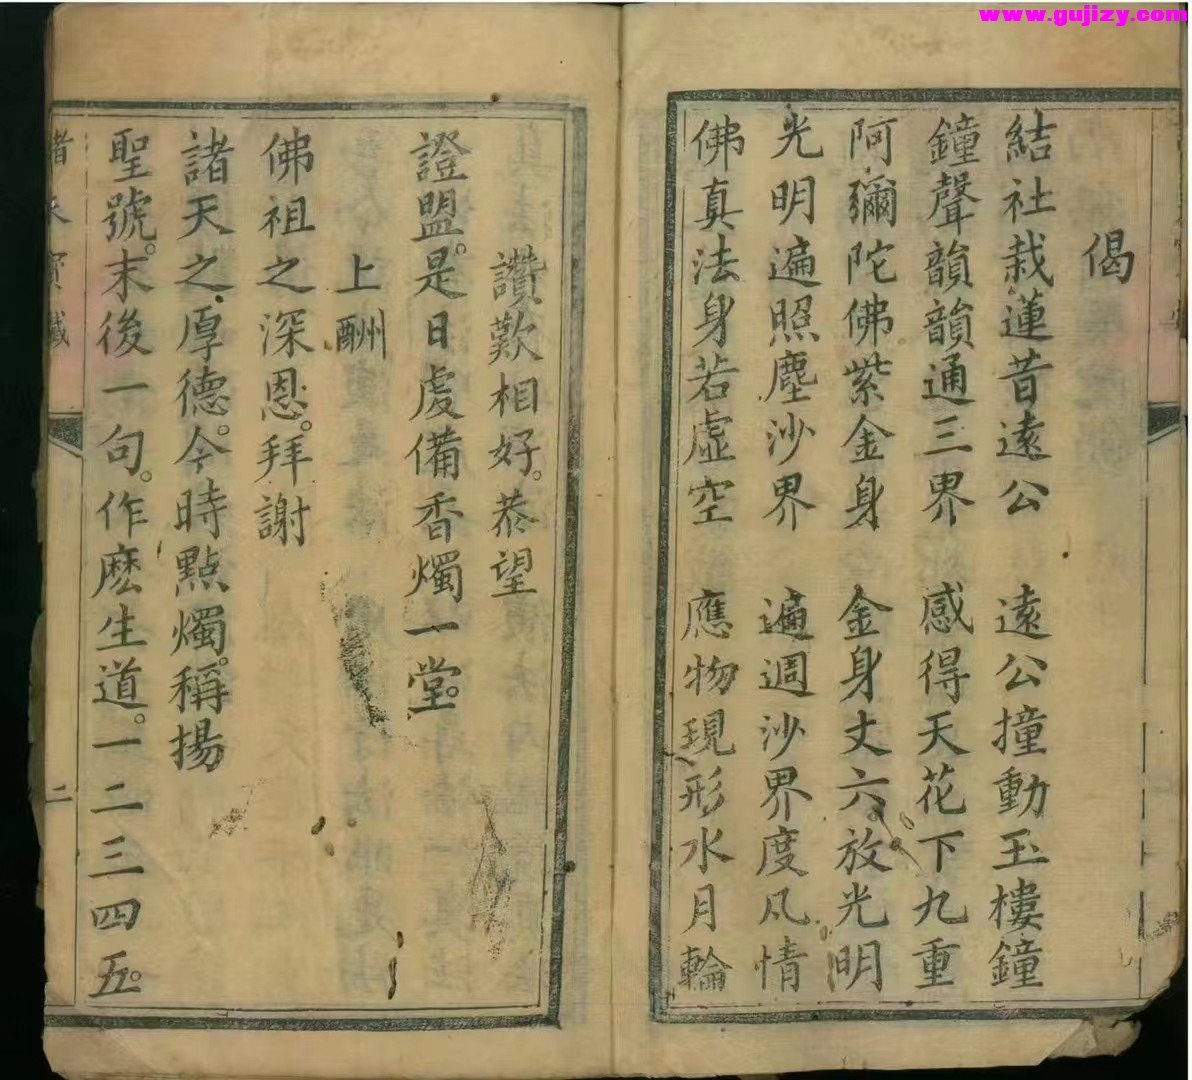 www.gujizy.com
偈
結社栽蓮昔遠公　遠公撞動玉樓鐘
鐘聲韻韻通三界　感得天花下九重
阿彌陀佛紫金身　金身丈六放光明
光明遍照塵沙界　遍週沙界度凡情
佛真法身若虛空　應物現形水月輪
讚歎相好。恭望
證盟。是日處備香燭一堂。
上酬
佛祖之深恩。拜謝
諸天之厚德。今時點燭。稱揚
聖號。末後一句。作麽生道。一二三四五。
諸天寶懺　二